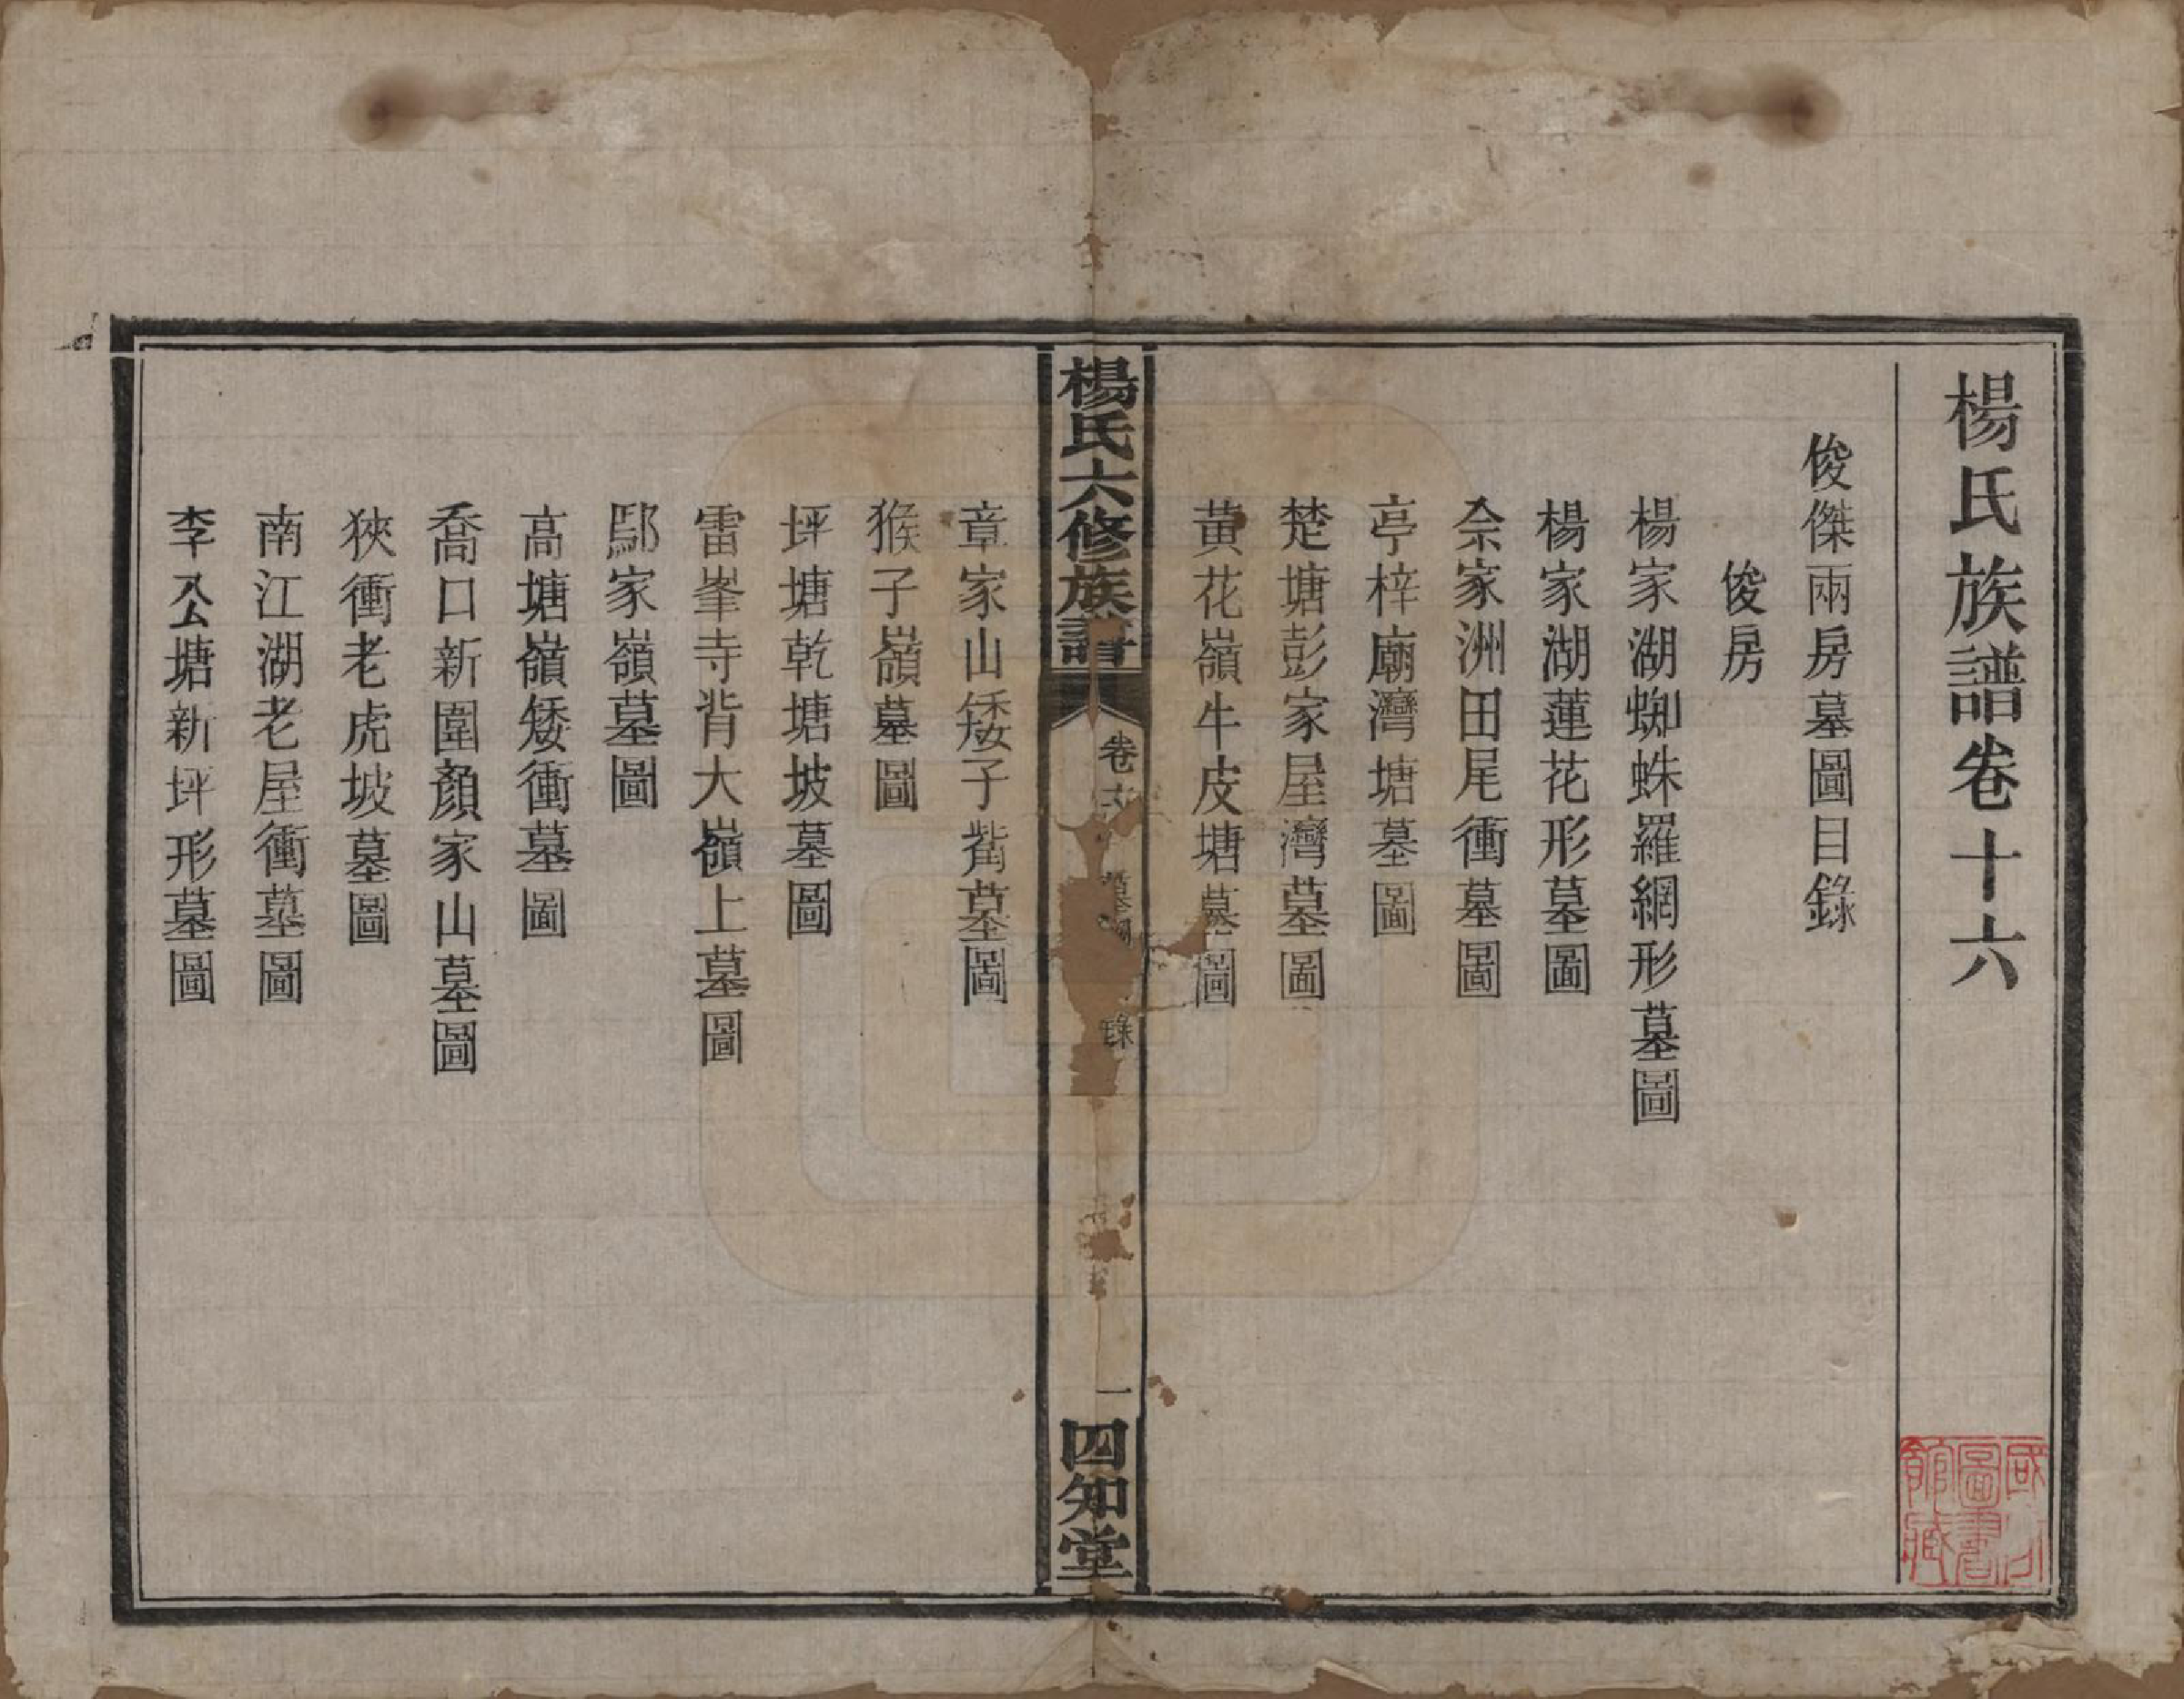 楊氏族譜卷十六
俊傑兩房墓圖目錄
俊房
楊家湖蜘蛛羅網形墓圖
楊家湖蓮花形墓圖
佘家洲田尾衝墓圖
亭梓廟灣塘墓圖
楚塘彭家屋灣墓圖
黃花嶺牛皮塘墓圖
楊氏六修族譜
卷十六
墓圖目錄
一
四知堂
章家山矮子觜墓圖
猴子嶺墓圖
坪塘乾塘坡墓圖
雷峯寺背大嶺上墓圖
鄢家嶺墓圖
高塘嶺矮衝墓圖
喬口新圍顏家山墓圖
狹衝老虎坡墓圖
南江湖老屋衝墓圖
李公塘新坪形墓圖
圖書
館藏